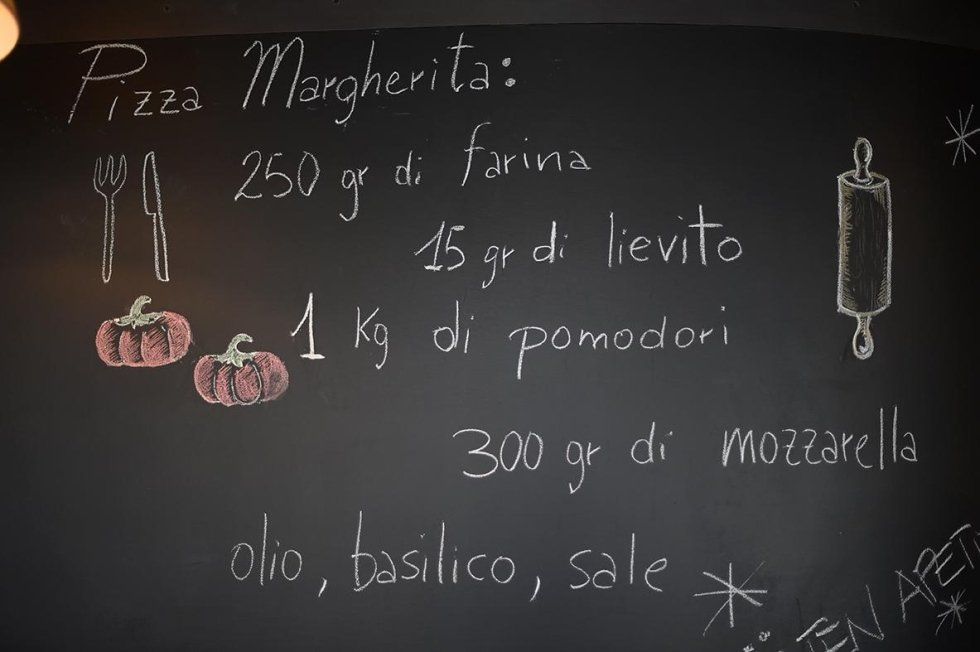 Pizza Margherita:
250 gr di farina
15 gr di lievito
1 Kg di pomodori
300 gr di mozzarella
olio, basilico, sale